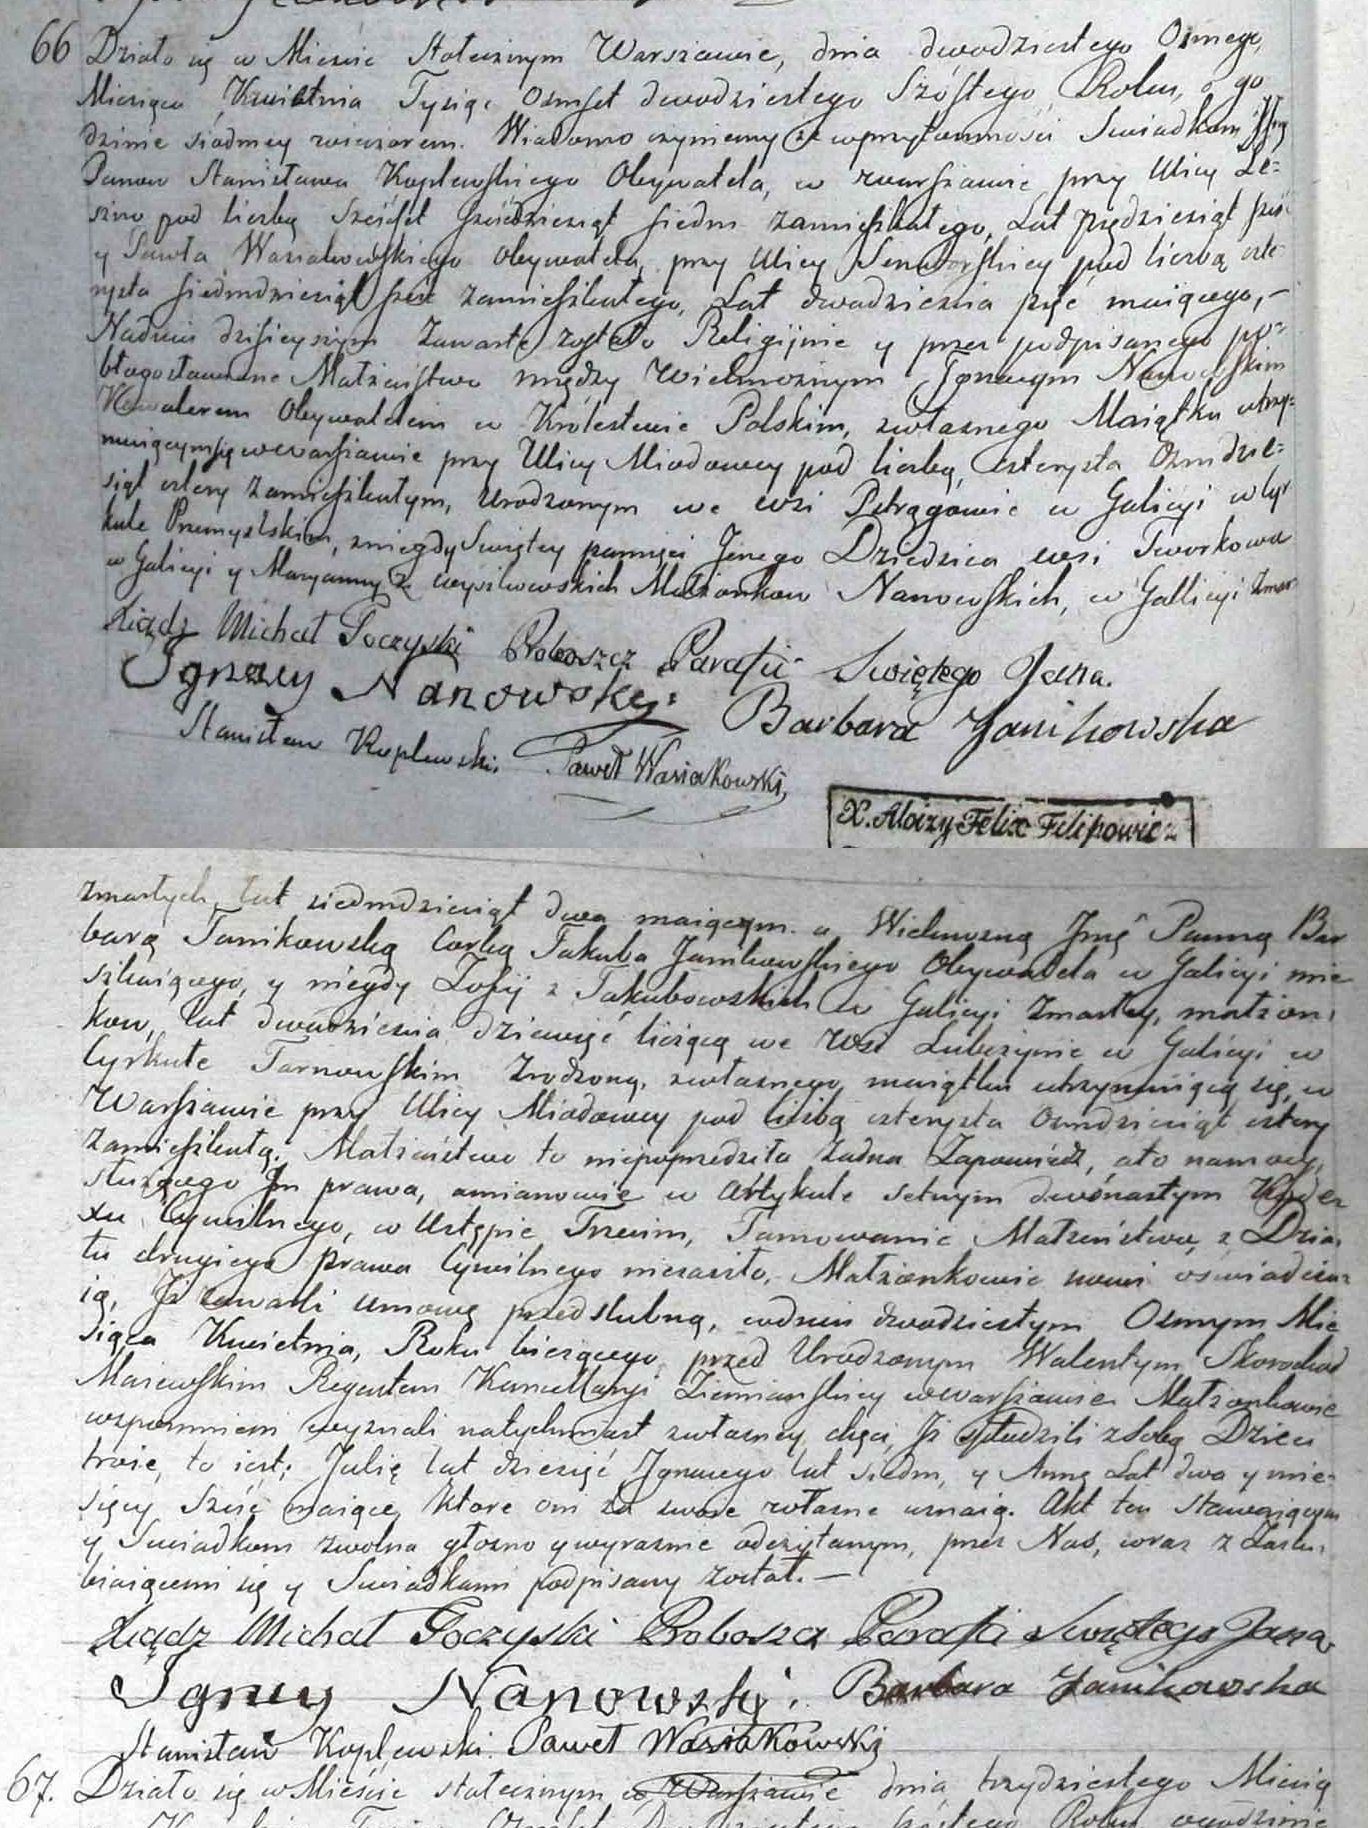 66 Działo się w Mieście Stołecznym Warszawie, dnia dwudziestego Osmego,
Miesiąca Kwietnia Tysiąc Osmset dwudziestego Szóstego Roku, o go
dzinie siódmey wieczorem. Wiadomo czyniemy że w przytomności Swiadkow
Panow Stanisława Koplewskiego Obywatela, w Warszawie przy Ulicy Le=
szno pod liczbą Sześćset sześćdziesiąt siedm zamieszkałego, Lat pięćdziesiąt
y Pawła Wasiakowskiego Obywatela, przy Ulicy Senatorskiey pod liczbą czte
rysta siedmdziesiąt sześć zamieszkałego, Lat dwadzieścia pięć maiącego, —
Na dniu dzisieyszym Zawarte zostało Religijnie y przez podpisanego po=
błogosławione Małżeństwo między Wielmożnym Ignacym Nanowskim
Kawalerem Obywatelem w Królestwie Polskim, z własnego Maiątku utrzy=
muiącym się w Warszawie przy Ulicy Miodowey pod liczbą czterysta Osmdzie=
siąt cztery zamieszkałym, Urodzonym we wsi Pstrągowie w Galicyi w Cyr
kule Przemyslskim, z niegdy Swiętey pamięci Dziedzica wsi Tworkowa
w Galicyi y Maryanny z Małżonkow Nanowskich, w Gallicyi zmar
Xiądz Michał Toczyski Proboszcz Parafii Swiętego Jana.
Ignacy Nanowski Barbara Janikowska
Stanisław Koplewski. Paweł Wasiakowski,
X. Aloizy Felix Filipowicz
zmarłych, lat siedmdziesiąt dwa maiącym. a Wielmożną Jmć Panną Bar
barą Janikowską Corką Jakuba Janikowskiego Obywatela w Galicyi mie
szkaiącego, y niegdy Zofij z Jakubowskich w Galicyi Zmarłey, małżon=
kow, lat dwadzieścia dziewięć liczącą we Wsi Lubczynie w Galicyi w
Cyrkule Tarnowskim Zrodzoną, z własnego maiątku utrzymuiącą się, w
Warszawie przy Ulicy Miodowey pod liczbą czterysta Osmdziesiąt cztery
Zamieszkałą. Małżeństwo to niepoprzedziła żadna Zapowiedź, a to na mocy,
służącego Jm prawa, a mianowicie w Artykule setnym dwónastym Kodex
xu Cywilnego, w Ustępie Trzecim, Tamowanie Małżeństwa, z Dzia
łu drugiego prawa Cywilnego niezaszło, Małżonkowie nowi oświadcza
ią, Jż zawarli umowę przedslubną, w dniu dwudziestym Osmym Mie
siąca Kwietnia, Roku bieżącego, przed Urodzonym Walentym Skorochod
Maiewskim Regentem Kancellaryi Ziemiańskiey w Warszawie. Małżonkowie
wspomnieni wyznali natychmiast z własney chęci, Jż spłudzili z sobą Dzieci
troie, to iest; Julię lat dziesięć Jgnacego lat siedm, y Annę Lat dwa y mie=
sięcy Sześć maiące, które oni za swoie własne uznaią. Akt ten Stawaiącym
y Swiadkom zwolna głosno y wyraźnie odczytanym, przez Nas, wraz z Zaslu=
biaiącemi się y Swiadkami podpisany został. —
Xiądz Michał Toczyski Proboszcz Parafii Swiętego Jana
Ignacy Nanowski. Barbara Janikowska
Stanisław Koplewski. Paweł Wasiakowski
67. Działo się w Mieście stołecznym w Warszawie dnia trzydziestego Miesią